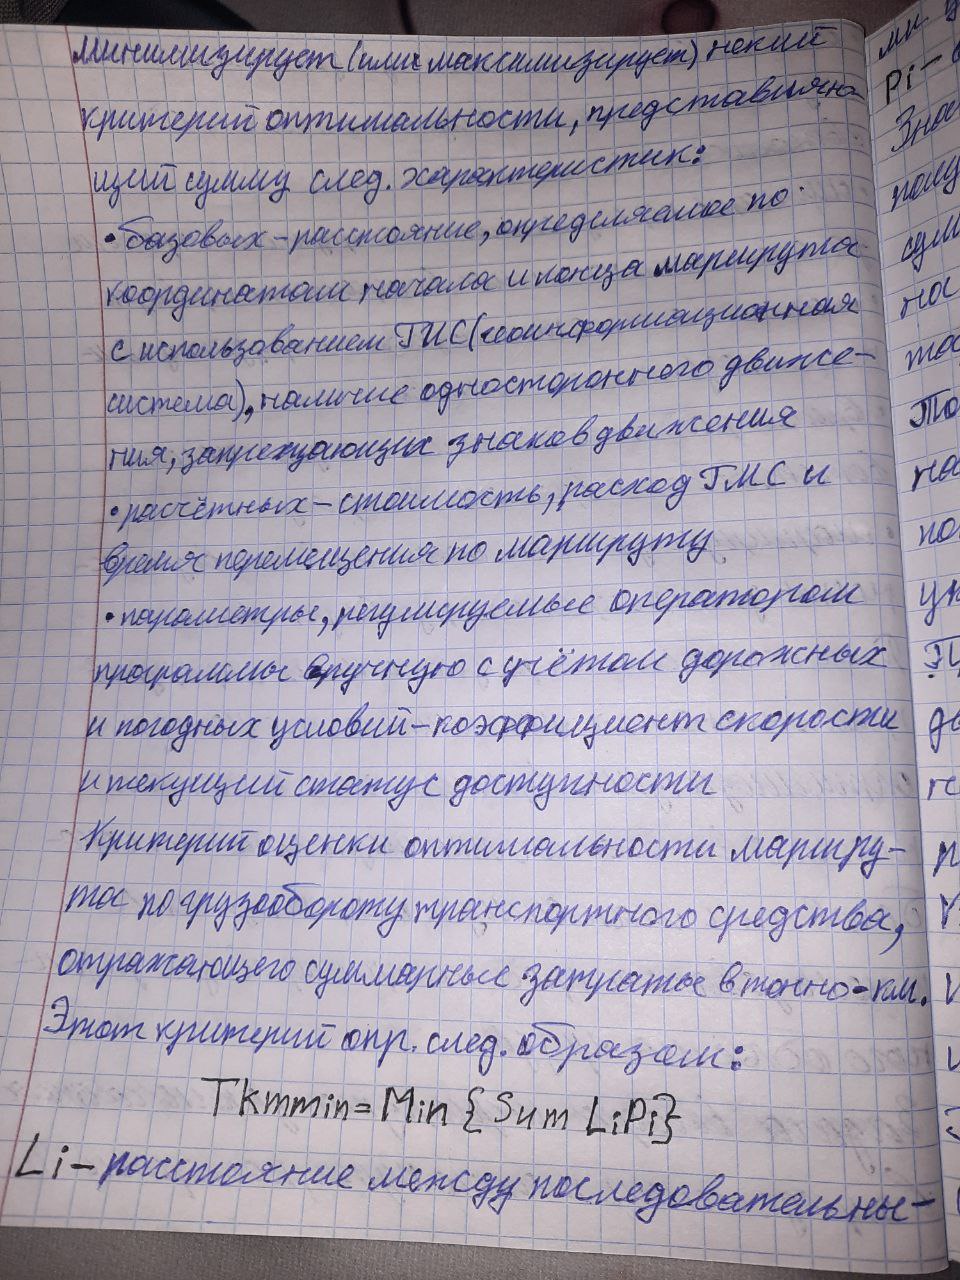 минимизирует (или максимизирует) некий
критерий оптимальности, представляю-
щий сумму след. характеристик:
• базовых – расстояние, определяемое по
координатам начала и конца маршрута
с использованием ГИС (геоинформационная
система), наличие одностороннего движе-
ния, запрещающих знаков движения
• расчётных – стоимость, расход ГМС и
время перемещения по маршруту
• параметры, регулируемые оператором
программы вручную с учётом дорожных
и погодных условий – коэффициент скорости
и текущий статус доступности
Критерий оценки оптимальности маршру-
та по грузообороту транспортного средства,
отражающего суммарные затраты в тонно-км.
Этот критерий опр. след. образом:
Tkmmin = Min {Sum LiPi}
Li – расстояние между последовательны-
ми
Pi –